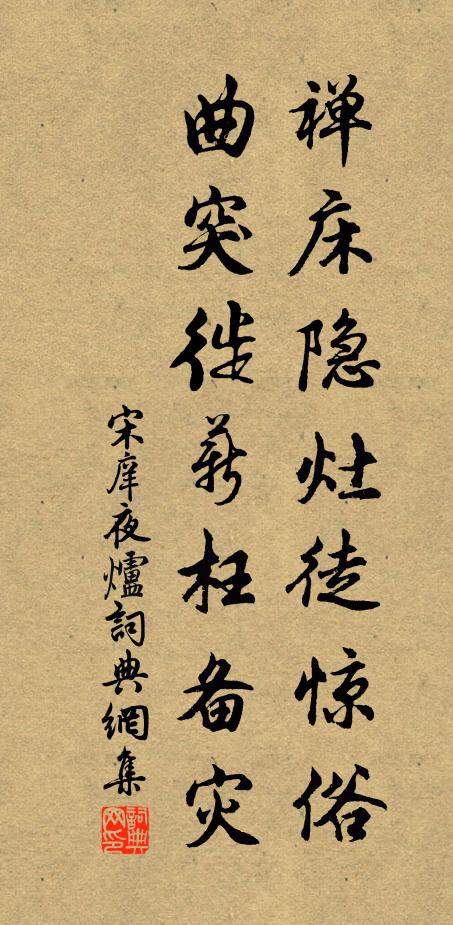 禅床隐灶徒惊俗
曲突徙薪枉备灾
宋庠夜爐詞典網集
詞典网印